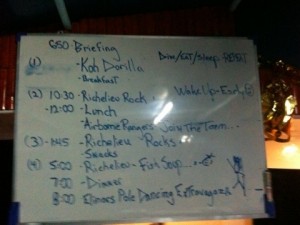 6:50 Briefing
Dive/Eat/Sleep REPEAT
(1) - Koh Dorilla
- Breakfast
(2) 10:30 - Richelieu Rock
Wake Up - Early
- 12:00 - Lunch
- Airborne Rangers Join The Team...
(3) - 1:45 - Richelieu "Rocks"
- Snacks
(4) 5:00 - Richelieu - Fish Soup...
7:00 - Dinner
8:00 Elinors Pole Dancing Extravaganza